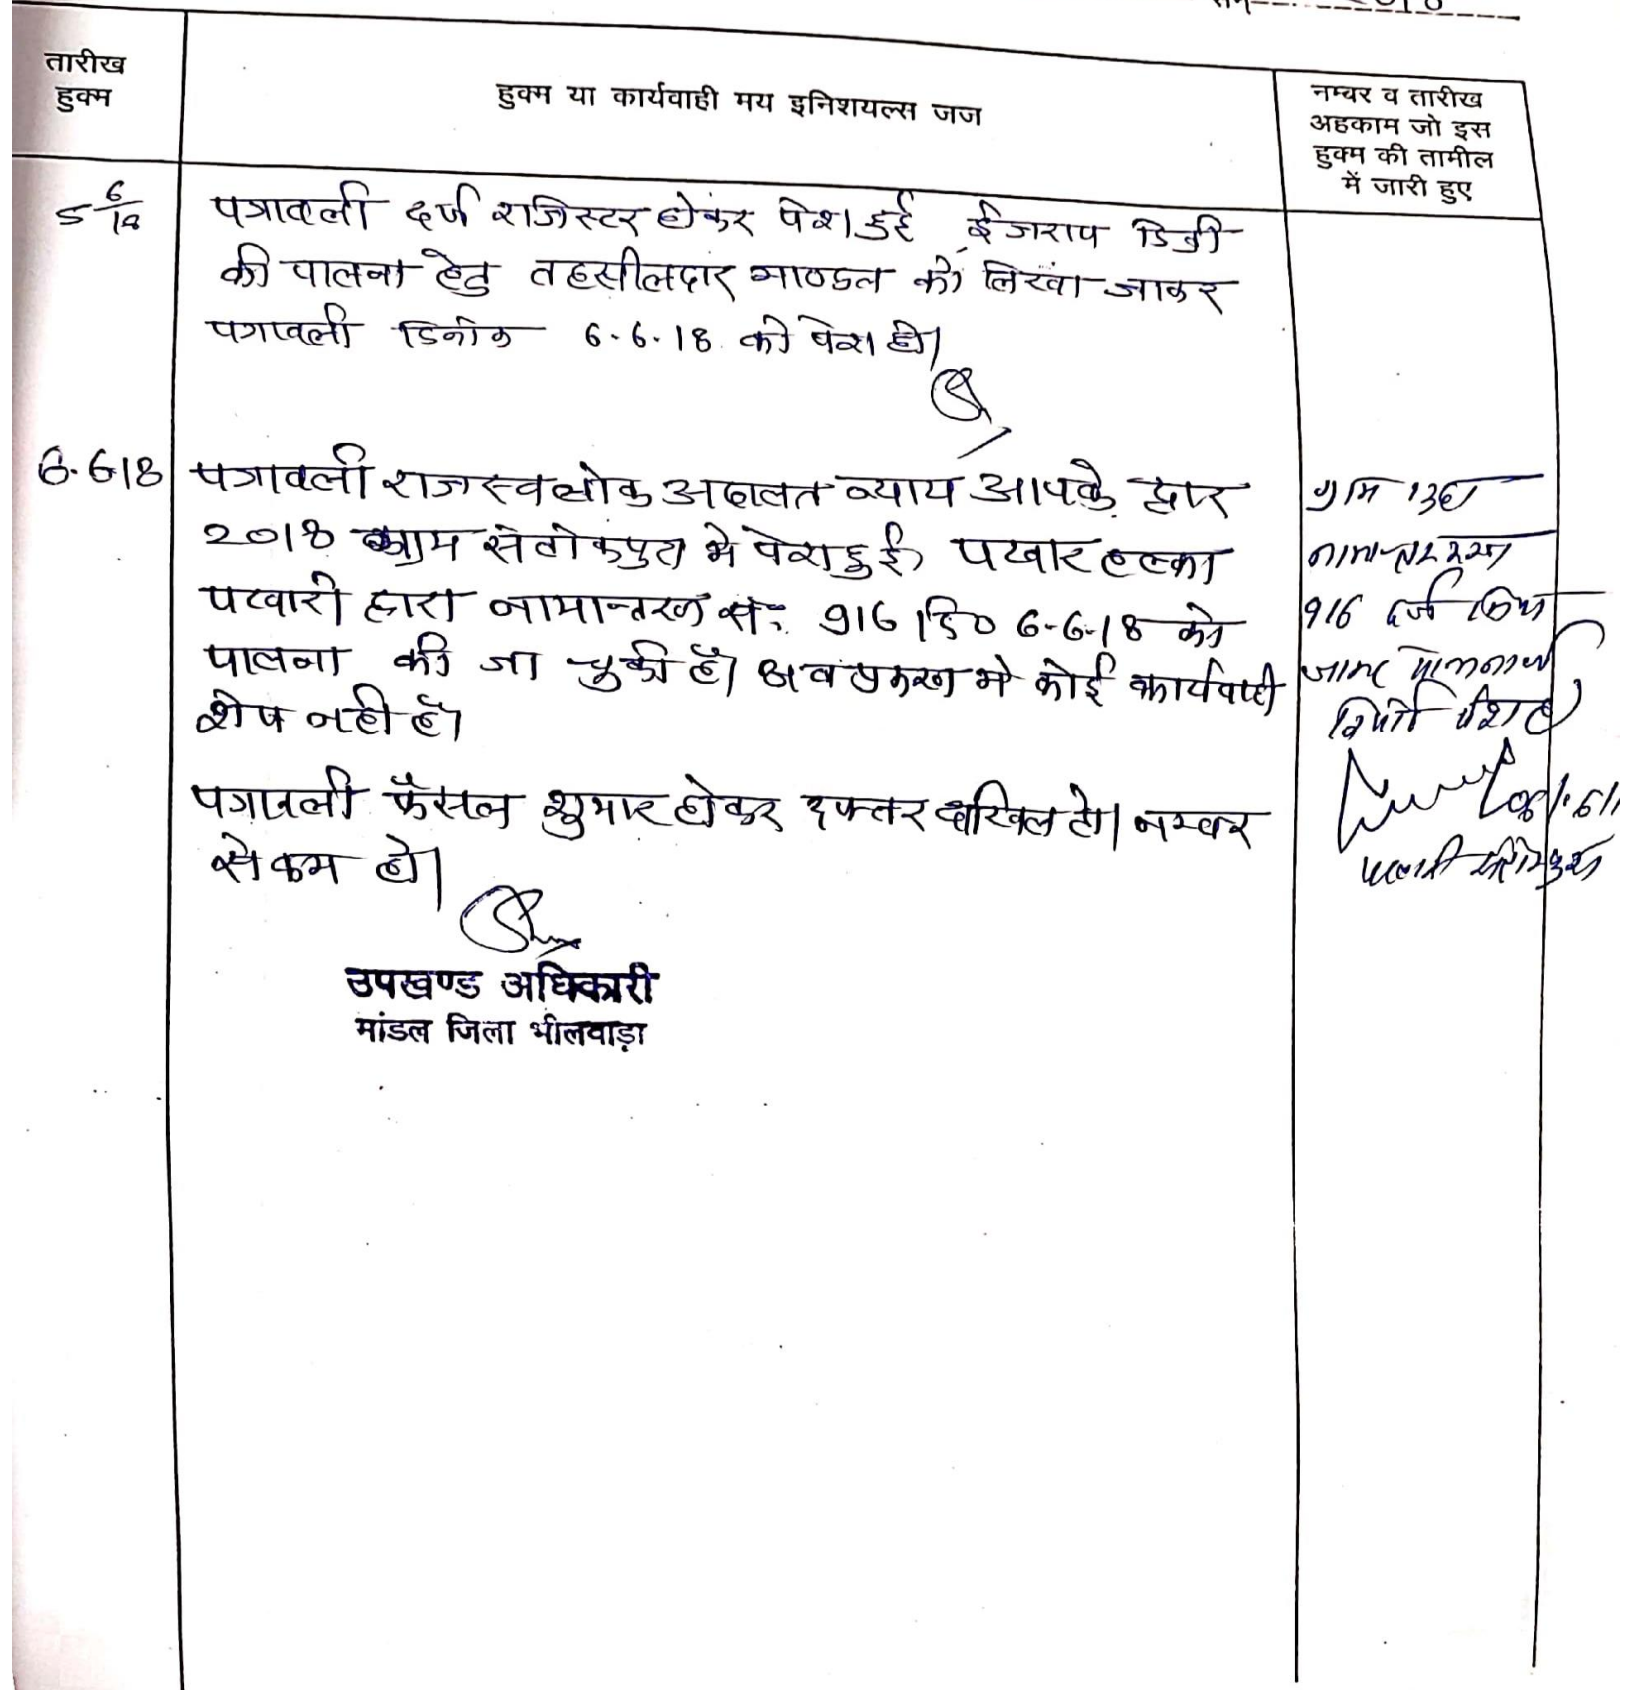 तारीख
हुक्म
हुक्म या कार्यवाही मय इनिशयल्स जज
नम्बर व तारीख
अहकाम जो इस
हुक्म की तामील
में जारी हुए
5 6/18
पत्रावली दर्ज राजिस्टर होकर पेश हुई ईजराय डिक्री
की पालना हेतु तहसीलदार माण्डल को लिखा जाकर
पत्रावली दिनांक 6.6.18 को पेश हो।
6.6.18
पत्रावली राजस्व लोक अदालत न्याय आपके द्वार
2018 ग्राम संतोकपुरा मे पेश हुई, पटवार हल्का
पटवारी द्वारा नामान्तरण सं. 916 दि0 6-6-18 को
पालना की जा चुकी है। अब प्रकरण मे कोई कार्यवाही
शेष नही है।
पत्रावली फैसल शुमार होकर दफ्तर दाखिल हो। नम्बर
से कम हो।
उपखण्ड अधिकारी
मांडल जिला भीलवाड़ा
916 दर्ज किया
पेश है